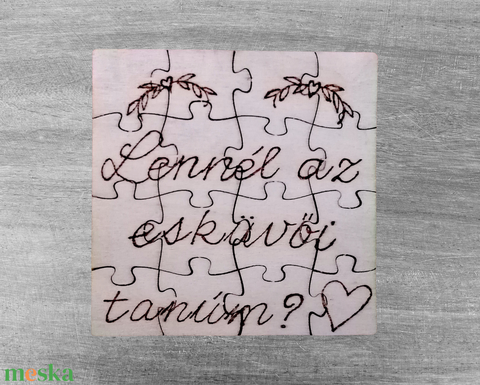 Lennél az
esküvői
tanúm?
meska